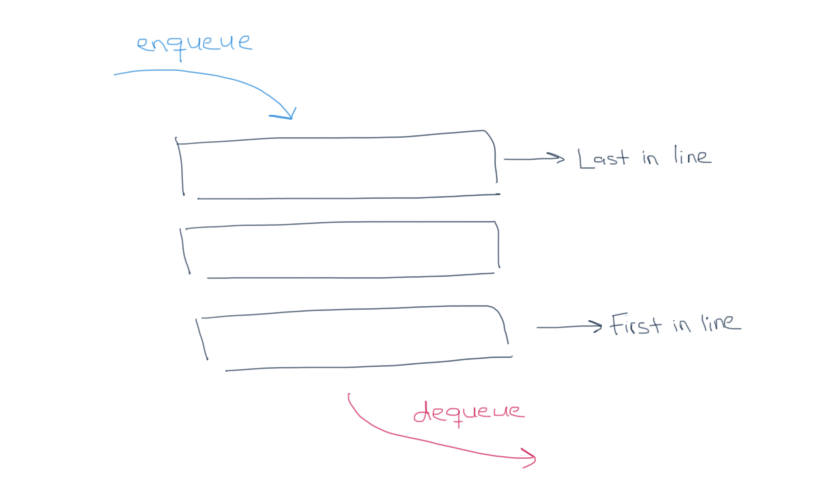 enqueue
Last in line
First in line
dequeue